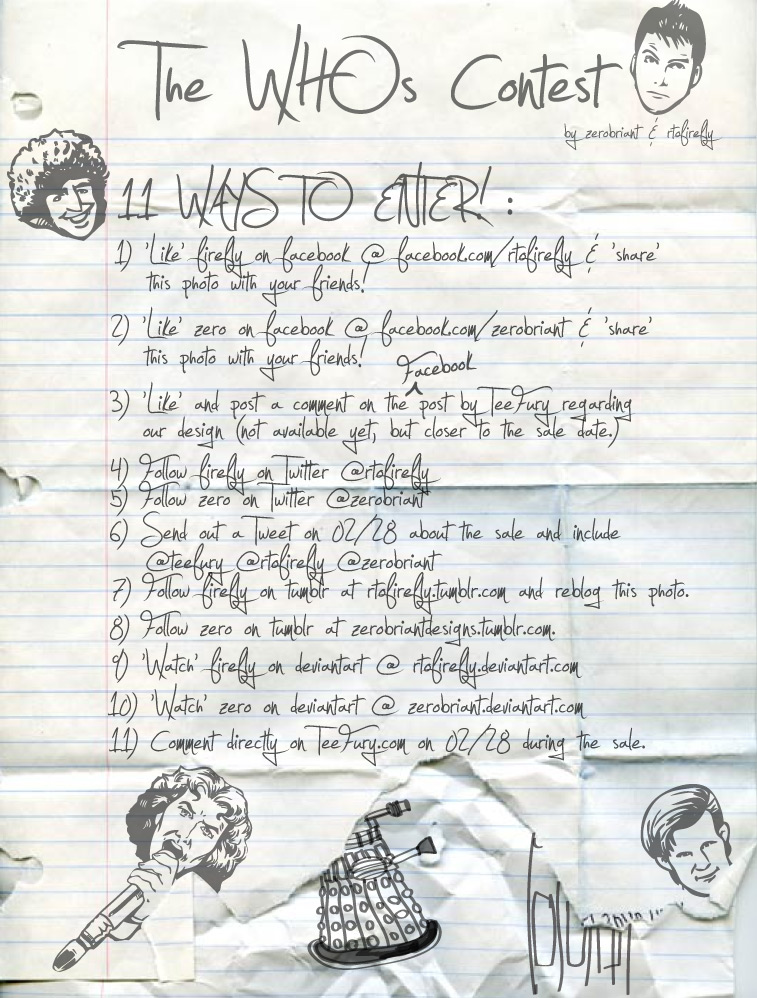 The WHOs Contest
by zerobriant & rtofirefly
11 WAYS TO ENTER! :
1) 'Like' firefly on facebook @ facebook.com/rtofirefly & 'share'
this photo with your friends!
2) 'Like' zero on facebook @ facebook.com/zerobriant & 'share'
this photo with your friends!
Facebook
3) 'Like' and post a comment on the ^ post by TeeFury regarding
our design (not available yet, but closer to the sale date.)
4) Follow firefly on Twitter @rtofirefly
5) Follow zero on Twitter @zerobriant
6) Send out a Tweet on 02/28 about the sale and include
@teefury @rtofirefly @zerobriant
7) Follow firefly on tumblr at rtofirefly.tumblr.com and reblog this photo.
8) Follow zero on tumblr at zerobriantdesigns.tumblr.com.
9) 'Watch' firefly on deviantart @ rtofirefly.deviantart.com
10) 'Watch' zero on deviantart @ zerobriant.deviantart.com
11) Comment directly on TeeFury.com on 02/28 during the sale.